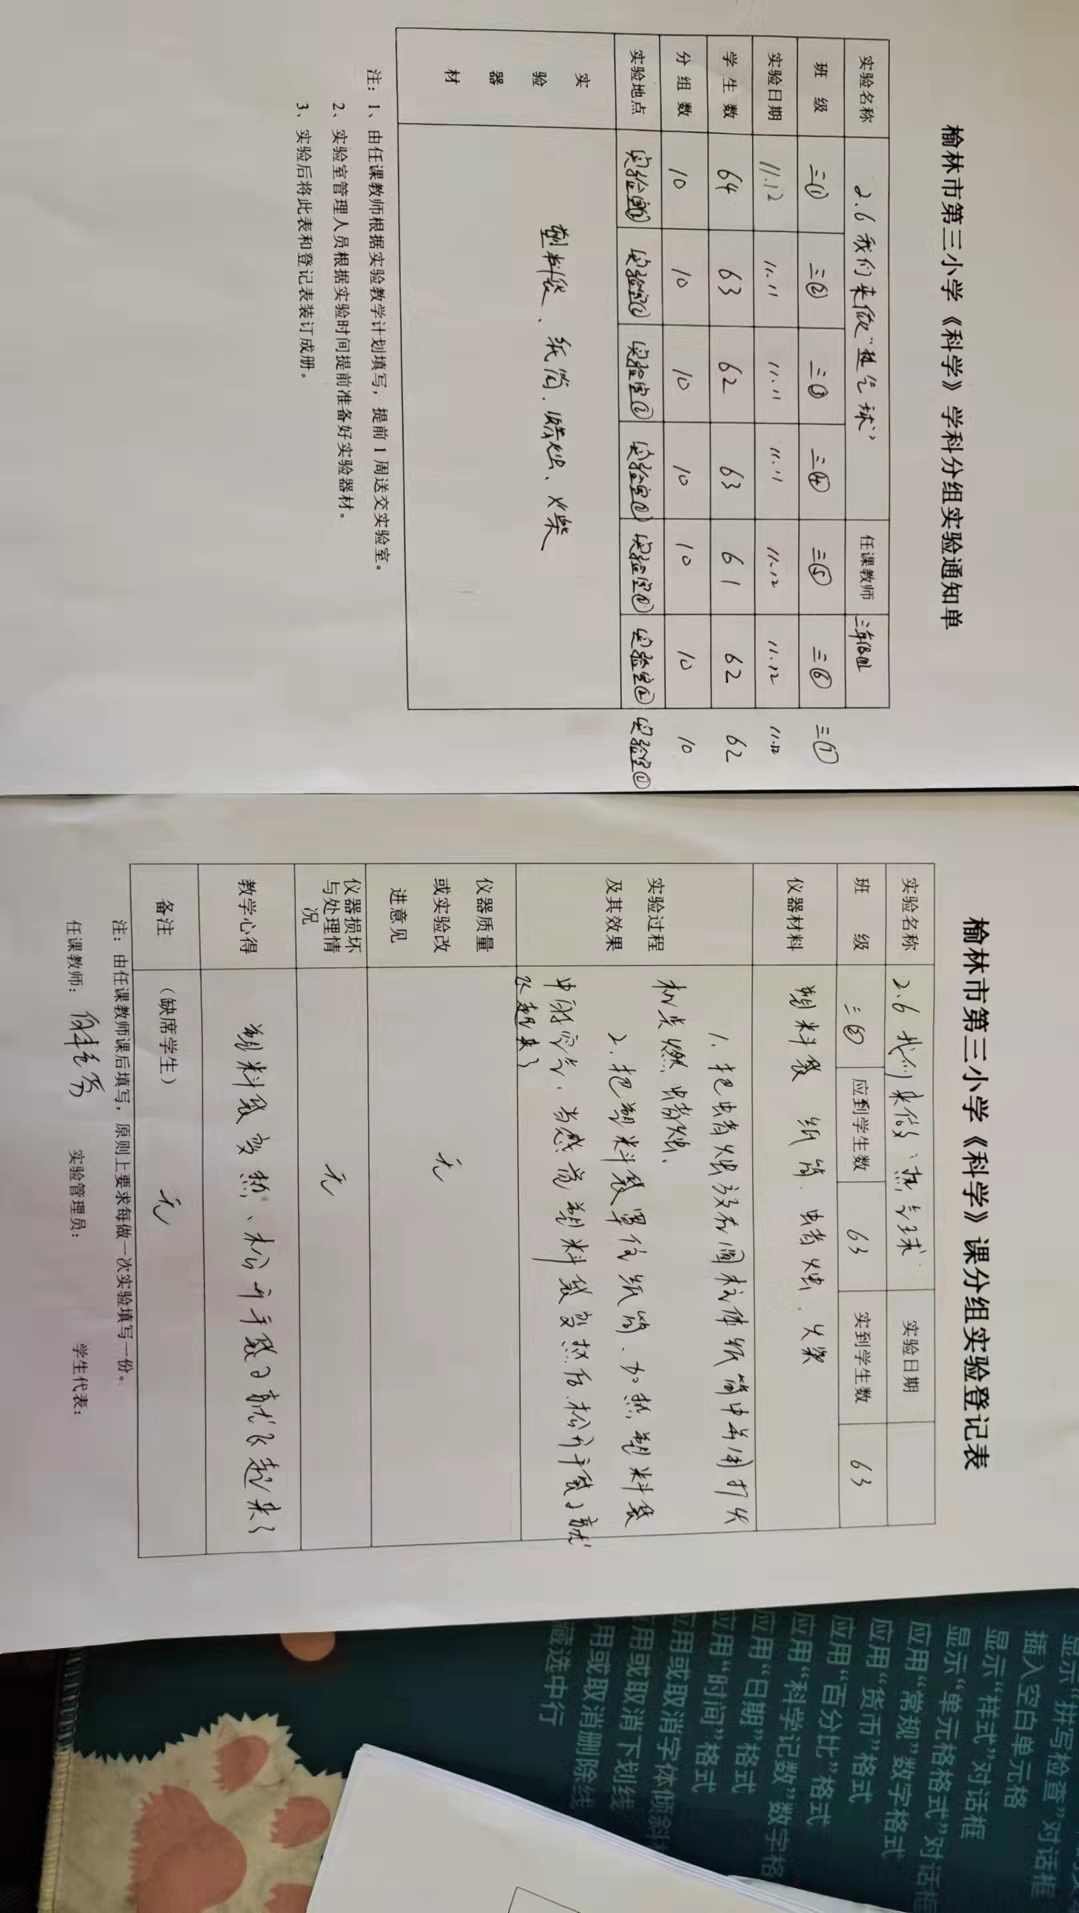 榆林市第三小学《科学》学科分组实验通知单
实验名称 2.6我们来做“热气球” 任课教师 三年级组
班 级 三① 三② 三③ 三④ 三⑤ 三⑥ 三⑦
实验日期 11.12 11.11 11.11 11.11 11.12 11.12 11.12
学生数 64 63 62 63 61 62 62
分组数 10 10 10 10 10 10 10
实验地点 实验室 实验室 实验室 实验室 实验室 实验室 实验室
实验器材 塑料袋、纸筒、蜡烛、火柴
注：1、由任课教师根据实验教学计划填写，提前1周送交实验室。
2、实验室管理人员根据实验时间提前准备好实验器材。
3、实验后将此表和登记表装订成册。
榆林市第三小学《科学》课分组实验登记表
实验名称 2.6 我们来做“热气球 实验日期
班 级 三 应到学生数 63 实到学生数 63
仪器材料 塑料袋 纸筒、蜡烛、火柴
实验过程及其效果 1.把蜡烛放在圆柱体纸筒中并用打火
机点燃蜡烛.
2.把塑料袋罩住纸筒.加热塑料袋
中的空气，当感觉塑料袋变热后.松开手袋子就
飞起来了
仪器质量或实验改进意见 无
仪器损坏与处理情况 无
教学心得 塑料袋变热、松开手袋子就飞起来了
备注 （缺席学生） 无
注：由任课教师课后填写，原则上要求每做一次实验填写一份。
任课教师： 实验管理员： 学生代表：
显示“拼写检查”对话框
插入空白单元格
显示“样式”对话框
显示“单元格格式”对话框
应用“常规”数字格式
应用“货币”格式
应用“百分比”格式
应用“科学记数”数字格
应用“日期”格式
应用“时间”格式
应用或取消字体倾斜
应用或取消下划线
应用或取消删除线
隐藏选中行